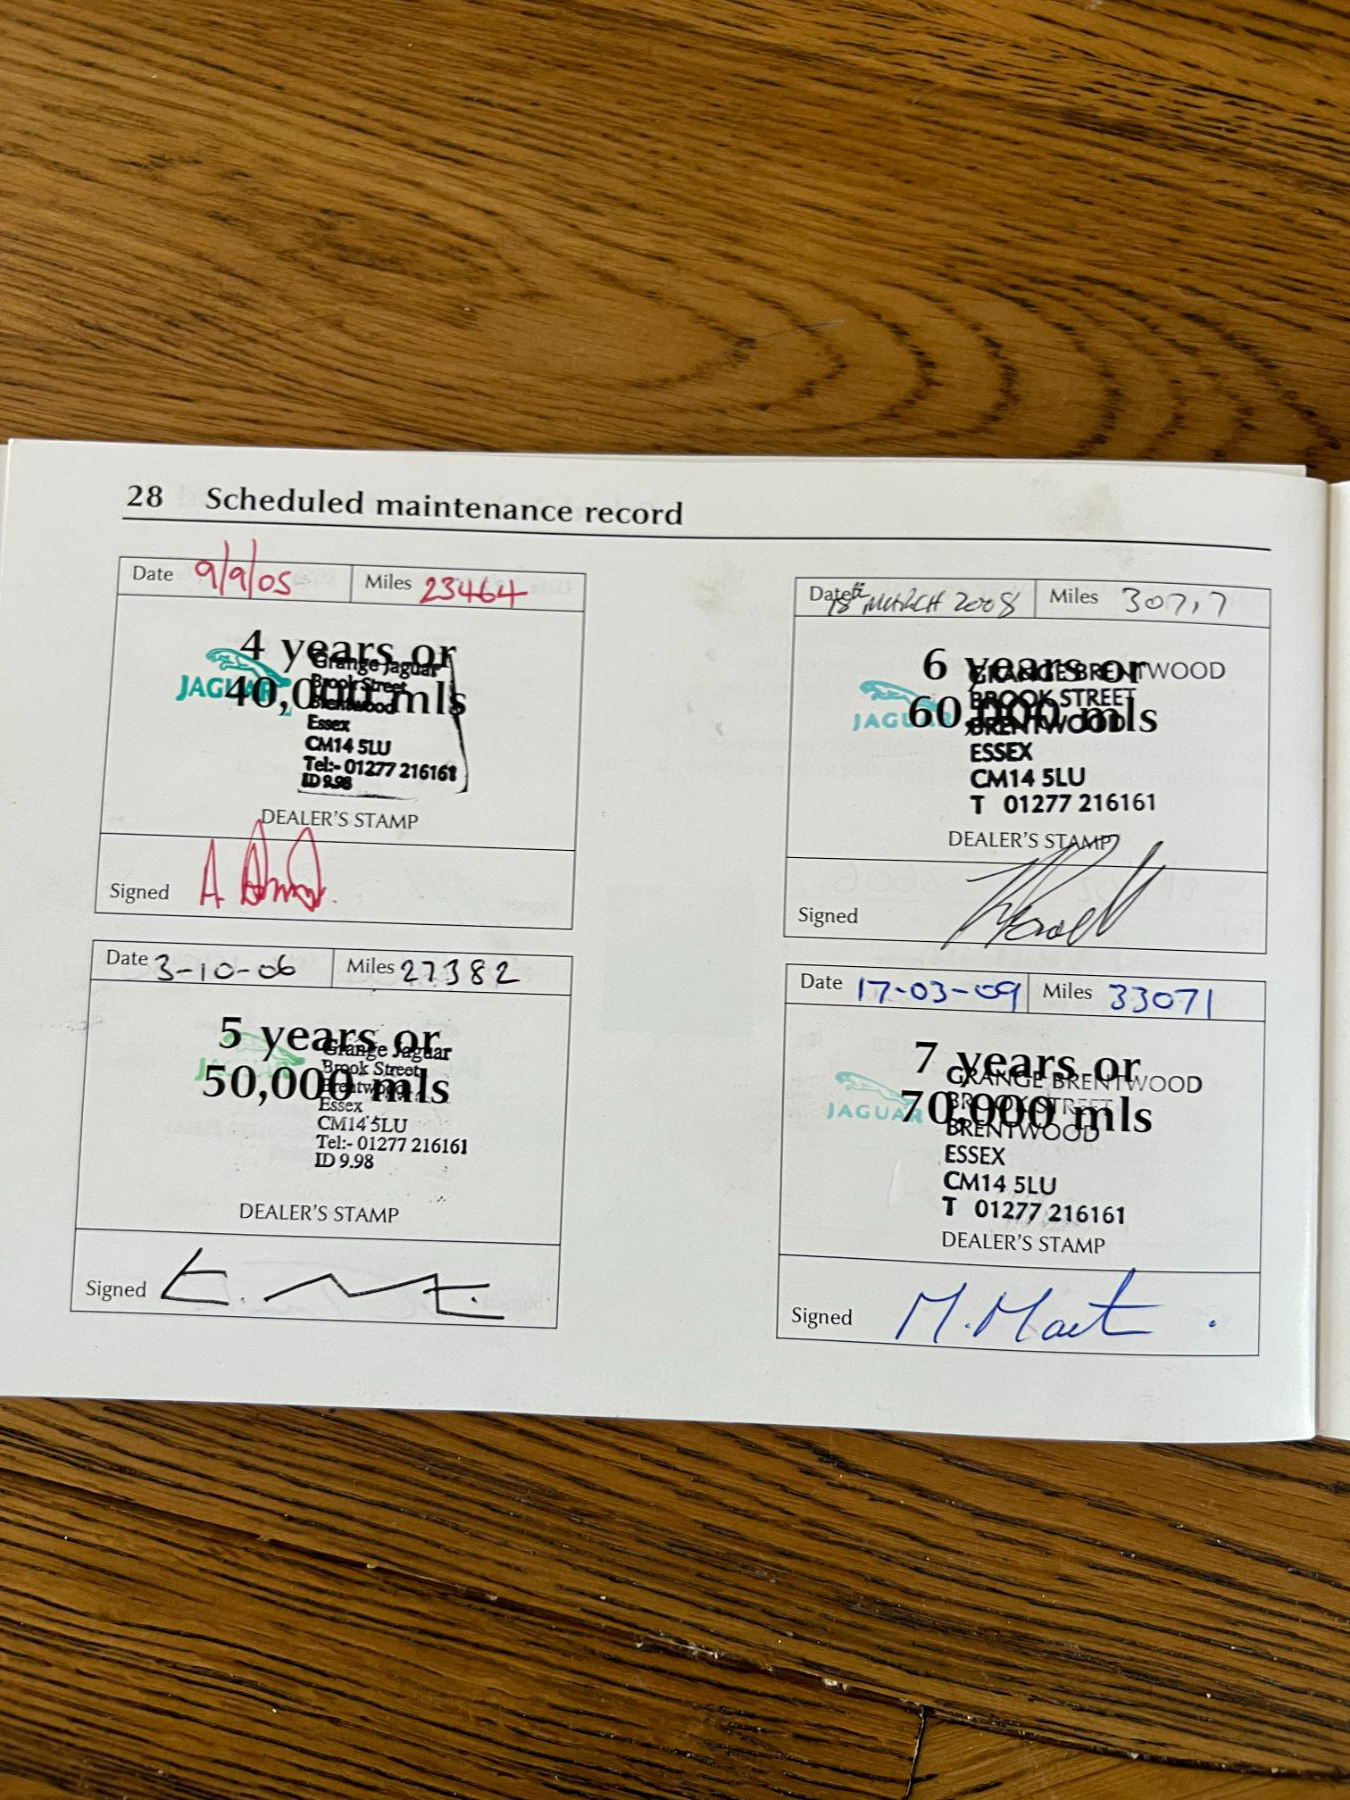 28 Scheduled maintenance record
Date 9/9/05 Miles 23464
4 years or
40,000 mls
JAGUAR
Grange Jaguar
Brook Street
Brentwood
Essex
CM14 5LU
Tel:- 01277 216161
ID 9.98
DEALER'S STAMP
Signed A
Date 3-10-06 Miles 27382
5 years or
50,000 mls
JAGUAR
Grange Jaguar
Brook Street
Brentwood
Essex
CM14 5LU
Tel:- 01277 216161
ID 9.98
DEALER'S STAMP
Signed
Date 18th MARCH 2008 Miles
6 years or
60,000 mls
JAGUAR
GRANGE BRENTWOOD
BROOK STREET
BRENTWOOD
ESSEX
CM14 5LU
T 01277 216161
DEALER'S STAMP
Signed
Date 17-03-09 Miles 33071
7 years or
70,000 mls
JAGUAR
GRANGE BRENTWOOD
BROOK STREET
BRENTWOOD
ESSEX
CM14 5LU
T 01277 216161
DEALER'S STAMP
Signed